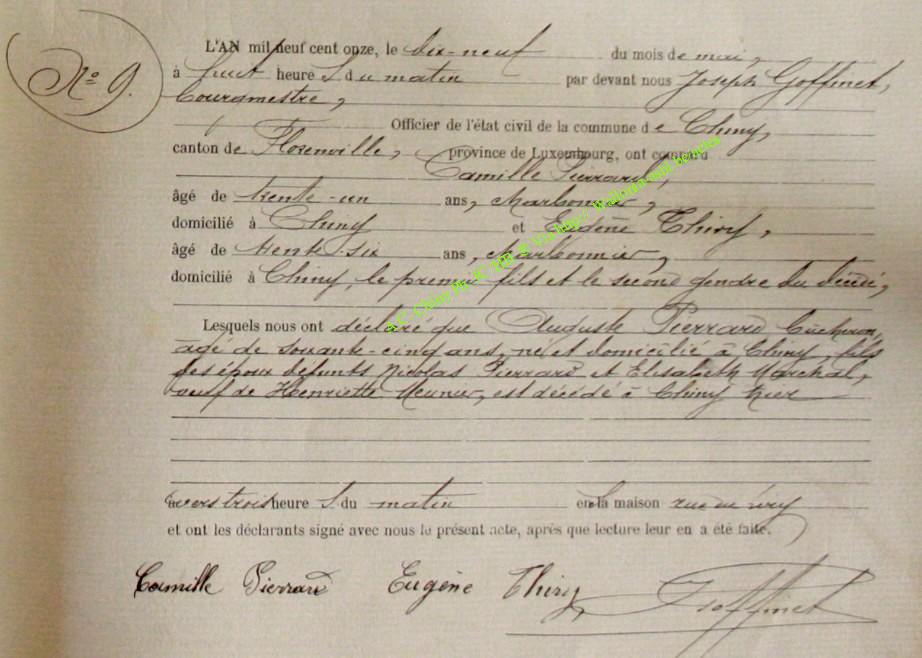 N° 9.
L'AN mil neuf cent onze, le dix-neuf du mois de mai,
à huit heure s du matin par devant nous Joseph Goffinet,
bourgmestre,
Officier de l'état civil de la commune de Chiny,
canton de Florenville, province de Luxembourg, ont comparu
Camille Pierrard,
âgé de trente-un ans, charbonnier,
domicilié à Chiny et Eugène Thiry,
âgé de trente-six ans, charbonnier,
domicilié à Chiny, le premier fils et le second gendre du décédé,
Lesquels nous ont déclaré que Auguste Pierrard bûcheron,
âgé de soixante-cinq ans, né et domicilié à Chiny, fils
des époux défunts Nicolas Pierrard et Elisabeth Marchal,
veuf de Henriette Meunier, est décédé à Chiny hier
vers trois heure s du matin en la maison rue du
et ont les déclarants signé avec nous le présent acte, après que lecture leur en a été faite.
Camille Pierrard Eugène Thiry JGoffinet